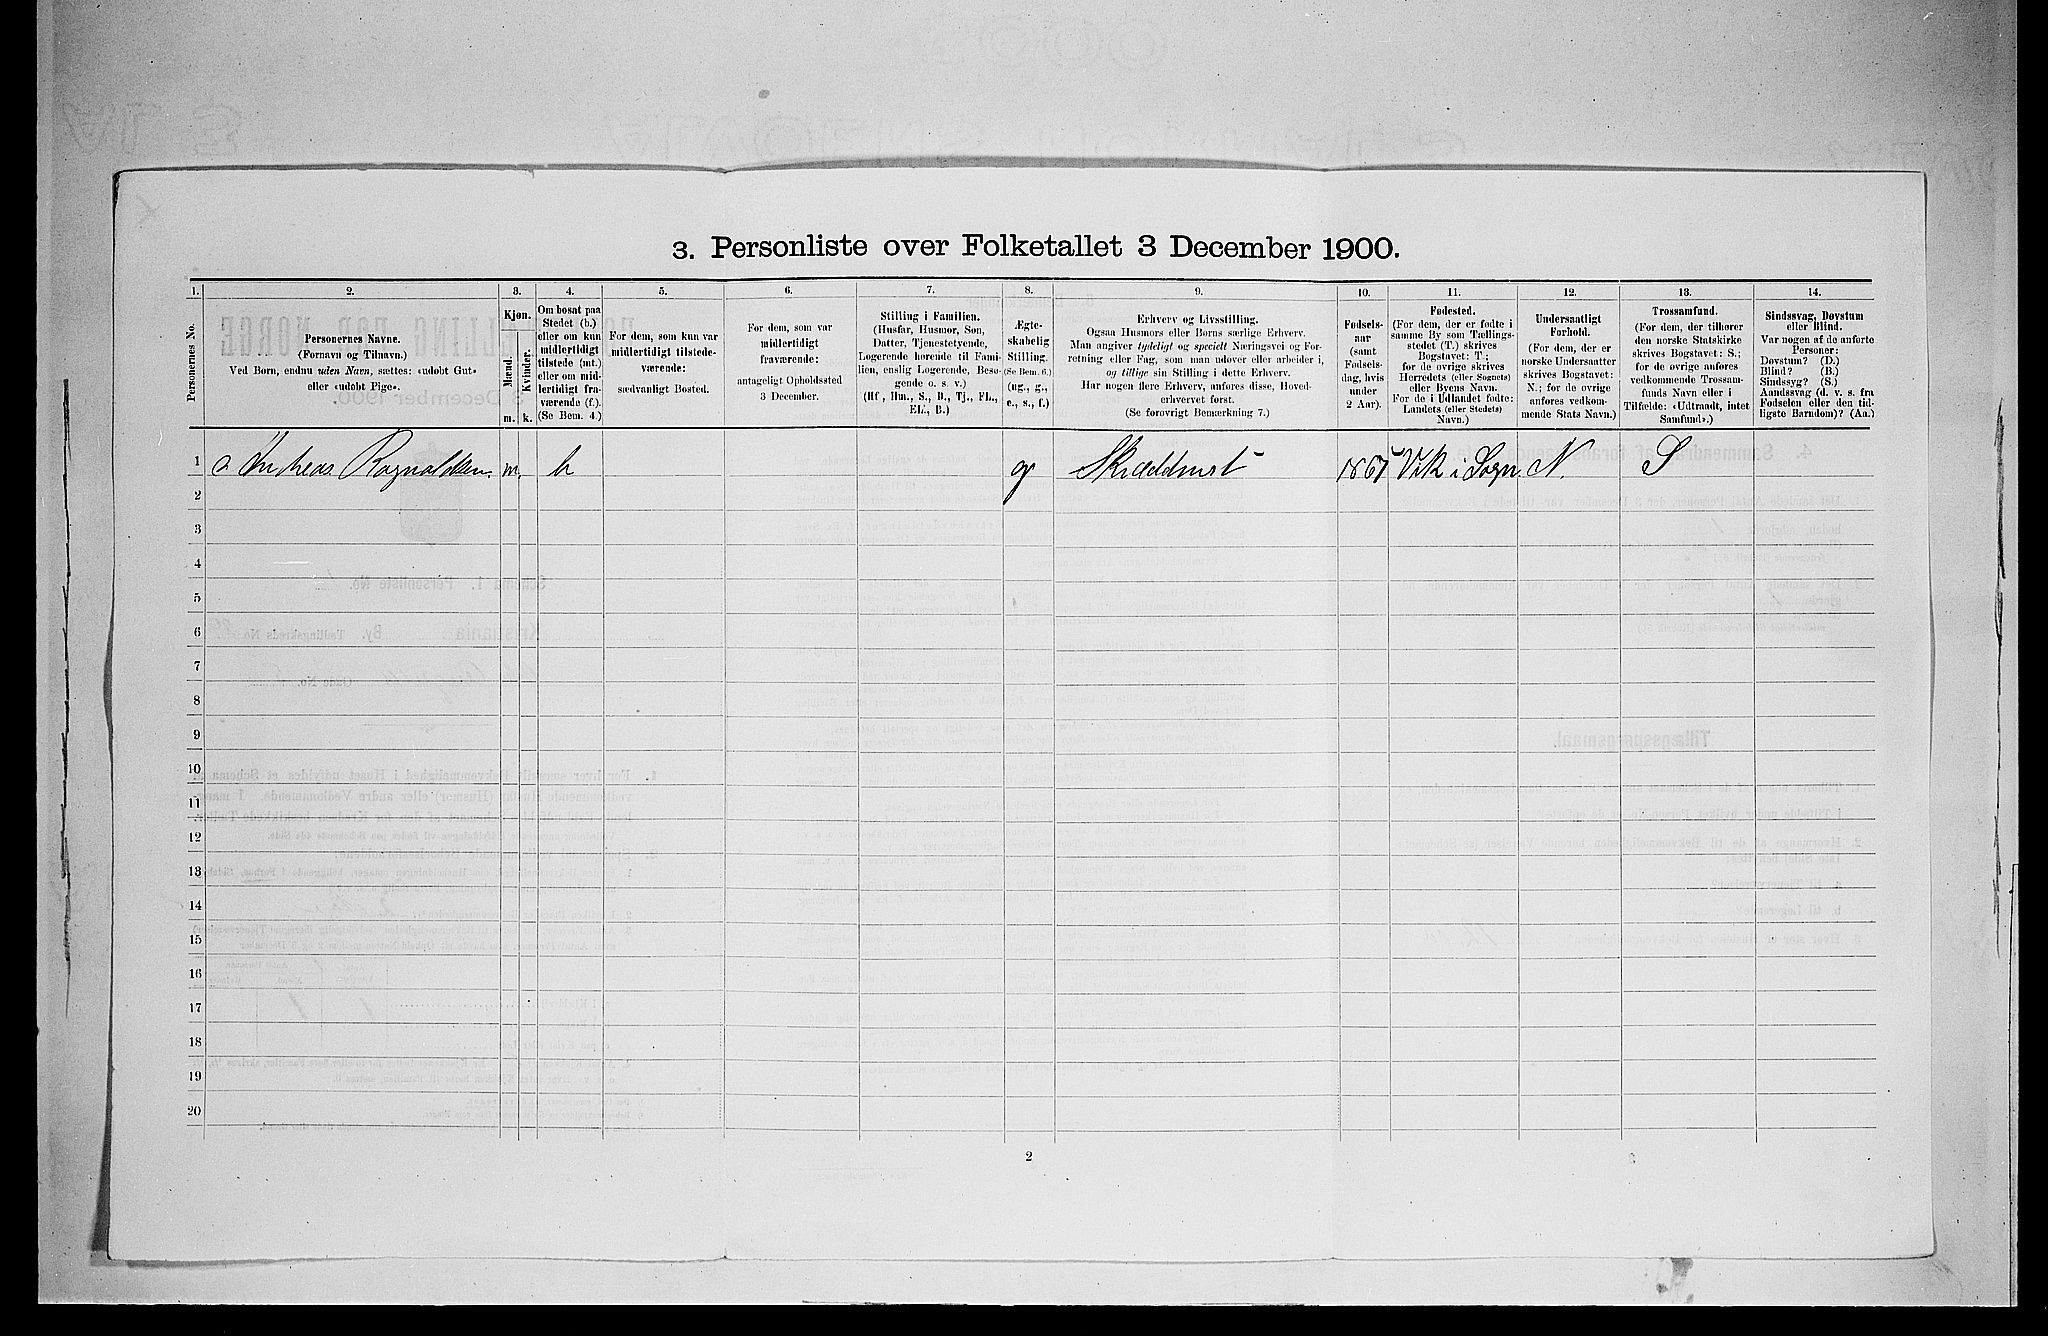 3. Personliste over Folketallet 3 December 1900.
1.
2.
3.
4.
5.
6.
7.
8.
9.
10.
11.
12.
13.
14.
Personernes No.
Personernes Navne.
(Fornavn og Tilnavn.)
Ved Børn, endnu uden Navn, sættes: «udøbt Gut»
eller «udøbt Pige».
Kjøn.
Mænd.
Kvinder.
m.
k.
Om bosat paa
Stedet (b.)
eller om kun
midlertidigt
tilstede (mt.)
eller om mid-
lertidigt fra-
værende (f.).
(Se Bem. 4.)
For dem, som kun var
midlertidigt tilstede-
værende:
sædvanligt Bosted.
For dem, som var
midlertidigt
fraværende:
antageligt Opholdssted
3 December.
Stilling i Familien.
(Husfar, Husmor, Søn,
Datter, Tjenestetyende,
Logerende hørende til Fami-
lien, enslig Logerende, Besø-
gende o. s. v.)
(Hf, Hm., S., D., Tj., FL.,
EL., B.)
Ægte-
skabelig
Stilling.
(Se Bem. 6.)
(ug., g.,
e., s., f.)
Erhverv og Livsstilling.
Ogsaa Husmors eller Børns særlige Erhverv.
Man angiver tydeligt og specielt Næringsvei og For-
retning eller Fag, som man udøver eller arbeider i,
og tillige sin Stilling i dette Erhverv.
Har nogen flere Erhverv, anføres disse, Hoved-
erhvervet først.
(Se forøvrigt Bemærkning 7.)
Fødsels-
aar
(samt
Fødsels-
dag, hvis
under
2 Aar).
Fødested.
(For dem, der er fødte i
samme By som Tællings-
stedet (T.) skrives
Bogstavet: T.;
for de øvrige skrives
Herredets (eller Sognets)
eller Byens Navn.
For de i Udlandet fødte:
Landets (eller Stedets)
Navn.)
Undersaatligt
Forhold.
(For dem, der er
norske Undersaatter
skrives Bogstavet:
N.; for de øvrige
anføres vedkom-
mende Stats Navn.)
Trossamfund.
(For dem, der tilhører
den norske Statskirke
skrives Bogstavet: S.;
for de øvrige anføres
vedkommende Trossam-
funds Navn eller i
Tilfælde: «Udtraadt, intet
Samfund».)
Sindssvag, Døvstum
eller Blind.
Var nogen af de anførte
Personer:
Døvstum? (D.)
Blind? (B.)
Sindssyg? (S.)
Aandssvag (d. v. s. fra
Fødselen eller den tid-
ligste Barndom)? (Aa.)
1 Andreas Ragnaldsen. m. b g Skræddersvt Vik i Sogn. N. S
2
3
4
5
6
7
8
9
10
11
12
13
14
15
16
17
18
19
20
2